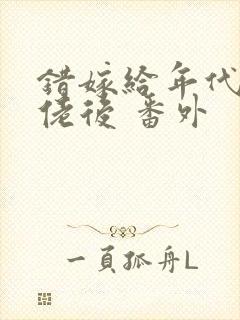 錯嫁給年代
佬後 番外
一頁孤舟L